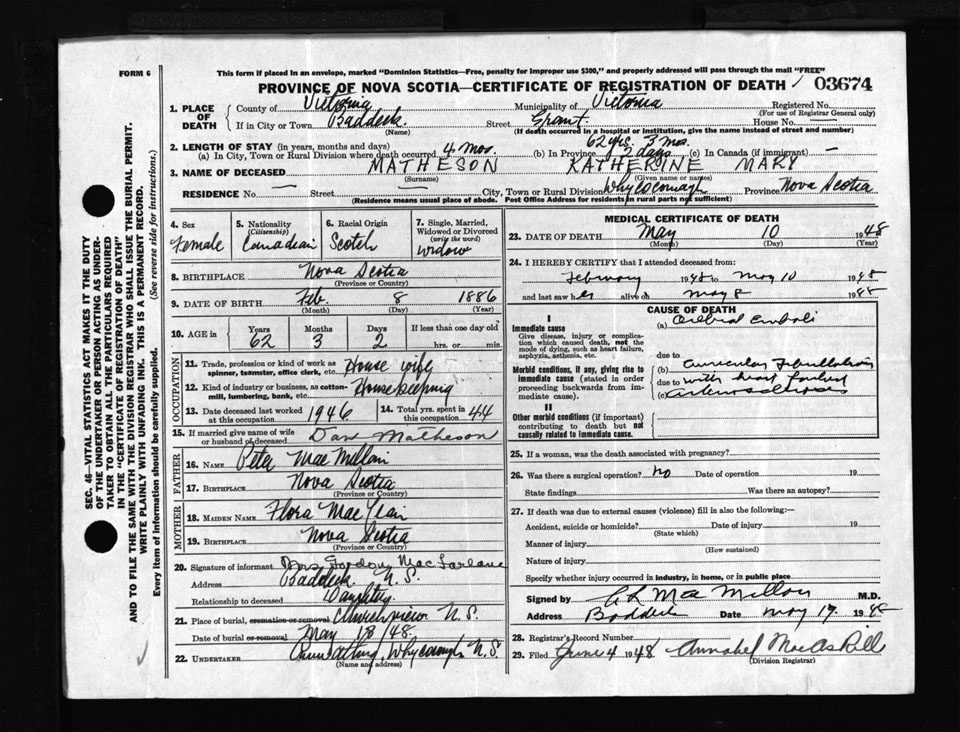 FORM 6
This form if placed in an envelope, marked "Dominion Statistics—Free, penalty for improper use $300," and properly addressed will pass through the mail "FREE"
PROVINCE OF NOVA SCOTIA—CERTIFICATE OF REGISTRATION OF DEATH 03674
1. PLACE OF DEATH
County of Victoria Municipality of Victoria Registered No.
(For use of Registrar General only)
If in City or Town Baddeck Street Grant House No.
(Name) (If death occurred in a hospital or institution, give the name instead of street and number)
2. LENGTH OF STAY (in years, months and days)
(a) In City, Town or Rural Division where death occurred 4 mos. (b) In Province 62 yrs. 3 mos. 2 days (c) In Canada (if immigrant) —
3. NAME OF DECEASED MATHESON KATHERINE MARY
(Surname) (Given name or names)
RESIDENCE No. — Street — City, Town or Rural Division Whycocomagh Province Nova Scotia
(Residence means usual place of abode. Post Office Address for residents in rural parts not sufficient)
4. Sex Female
5. Nationality (Citizenship) Canadian
6. Racial Origin Scotch
7. Single, Married, Widowed or Divorced (write the word) Widow
8. BIRTHPLACE Nova Scotia
(Province or Country)
9. DATE OF BIRTH Feb. 8 1886
(Month) (Day) (Year)
10. AGE in Years 62 Months 3 Days 2 If less than one day old hrs. or min.
OCCUPATION
11. Trade, profession or kind of work as spinner, teamster, office clerk, etc. House wife
12. Kind of industry or business, as cotton-mill, lumbering, bank, etc. Housekeeping
13. Date deceased last worked at this occupation 1946
14. Total yrs. spent in this occupation 44
15. If married give name of wife or husband of deceased Dan Matheson
FATHER
16. NAME Peter MacMillan
17. BIRTHPLACE Nova Scotia
(Province or Country)
MOTHER
18. MAIDEN NAME Flora MacLean
19. BIRTHPLACE Nova Scotia
(Province or Country)
20. Signature of informant Mrs Gordon MacFarlane
Address Baddeck N.S.
Relationship to deceased Daughter
21. Place of burial, cremation or removal Churchview N.S.
Date of burial or removal May 18/48.
22. UNDERTAKER Whycocomagh N.S.
(Name and address)
MEDICAL CERTIFICATE OF DEATH
23. DATE OF DEATH May 10 1948
(Month) (Day) (Year)
24. I HEREBY CERTIFY that I attended deceased from:
February 1948 to May 10 1948
and last saw her alive on May 8 1948
CAUSE OF DEATH
I
Immediate cause
Give disease, injury or complication which caused death, not the mode of dying, such as heart failure, asphyxia, asthenia, etc.
(a) Cerebral emboli
due to
Morbid conditions, if any, giving rise to immediate cause (stated in order proceeding backwards from immediate cause).
(b) auricular fibrillation
due to with heart
(c) arteriosclerosis
II
Other morbid conditions (if important) contributing to death but not causally related to immediate cause.
25. If a woman, was the death associated with pregnancy?
26. Was there a surgical operation? no Date of operation 19
State findings Was there an autopsy?
27. If death was due to external causes (violence) fill in also the following:—
Accident, suicide or homicide? Date of injury 19
(State which)
Manner of injury
(How sustained)
Nature of injury
Specify whether injury occurred in industry, in home, or in public place
Signed by C L MacMillan M.D.
Address Baddeck Date May 19. 1948
28. Registrar's Record Number
29. Filed June 4 1948 Annabel MacAskill
(Division Registrar)
SEC. 46—VITAL STATISTICS ACT MAKES IT THE DUTY
OF THE UNDERTAKER OR PERSON ACTING AS UNDER-
TAKER TO OBTAIN ALL THE PARTICULARS REQUIRED
IN THE "CERTIFICATE OF REGISTRATION OF DEATH"
AND TO FILE THE SAME WITH THE DIVISION REGISTRAR WHO SHALL ISSUE THE BURIAL PERMIT.
WRITE PLAINLY WITH UNFADING INK. THIS IS A PERMANENT RECORD.
Every item of Information should be carefully supplied. (See reverse side for instructions.)